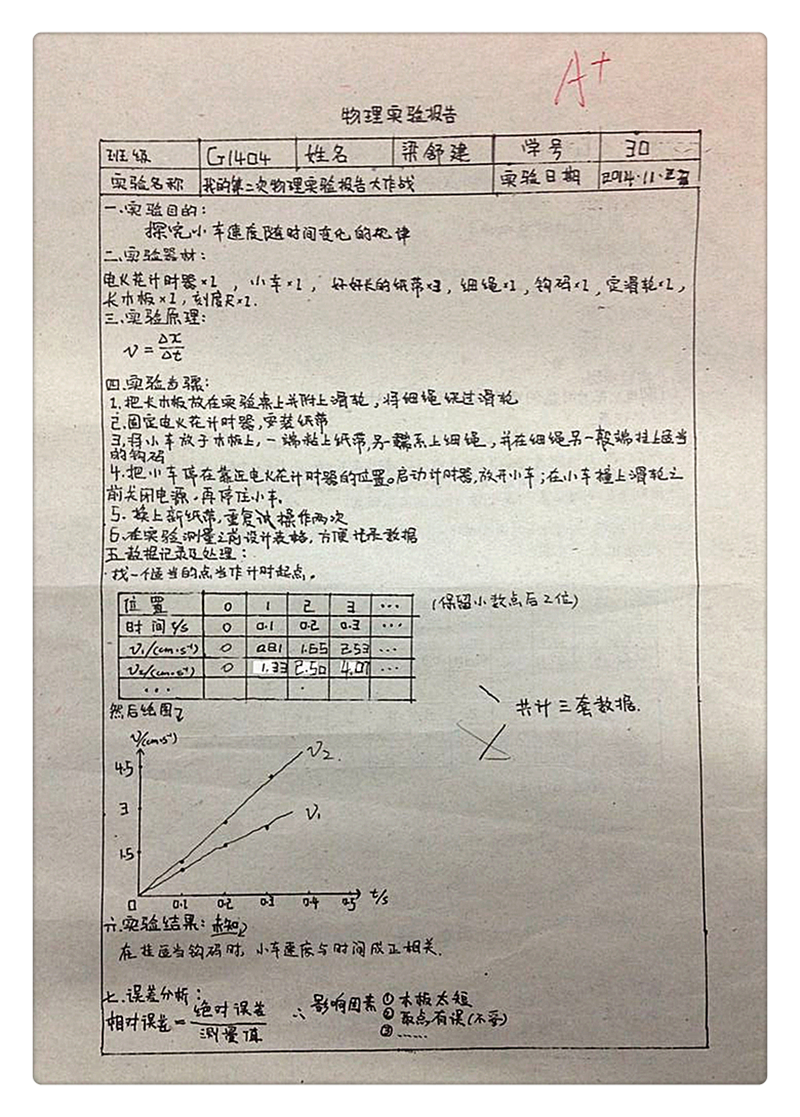 A+
物理实验报告
班级 G1404 姓名 梁舒建 学号 30
实验名称 我的第二次物理实验报告大作战 实验日期 2014.11.
一.实验目的:
探究小车速度随时间变化的规律
二.实验器材:
电火花计时器×1 , 小车×1 , 好好长的纸带×3, 细绳×1, 钩码×1, 定滑轮×1,
长木板×1, 刻度尺×1.
三.实验原理:
v = Δx/Δt
四.实验步骤:
1.把长木板放在实验桌上并附上滑轮,将细绳绕过滑轮
2.固定电火花计时器,安装纸带
3.将小车放于木板上,一端粘上纸带,另一端系上细绳,并在细绳另一端挂上适当
的钩码
4.把小车停在靠近电火花计时器的位置。启动计时器,放开小车;在小车撞上滑轮之
前关闭电源,再停住小车.
5.换上新纸带,重复操作两次
6.在实验测量之前设计表格,方便记录数据
五.数据记录及处理:
找一个适当的点当作计时起点.
位置 0 1 2 3 ... (保留小数点后2位)
时间t/s 0 0.1 0.2 0.3 ...
v₁/(cm·s⁻¹) 0 0.81 1.65 2.53 ...
v₂/(cm·s⁻¹) 0 1.33 2.50 4.07 ...
...
然后绘图
共计三套数据.
v/(cm·s⁻¹)
v₂
4.5
3
v₁
1.5
0 0.1 0.2 0.3 0.4 0.5 t/s
六.实验结果: 未知
在挂适当钩码时, 小车速度与时间成正相关.
七.误差分析:
相对误差=绝对误差/测量值 ∴影响因素 ①木板太短
②取点有误(不妥)
③......